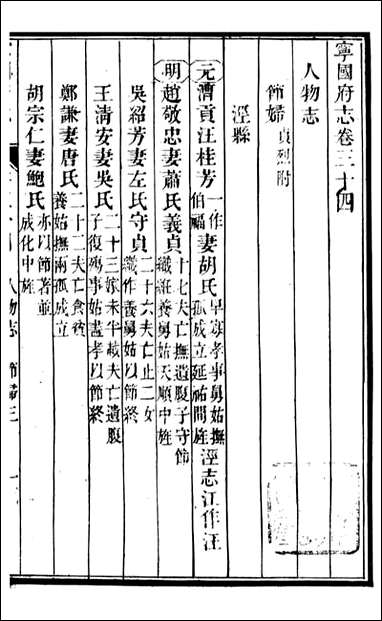 寧國府志卷三十四
人物志
節婦貞烈附
涇縣
元漕貢汪桂芳一作伯福妻胡氏早孀孝事舅姑撫孤成立延祐間旌涇志江作汪
明趙敬忠妻蕭氏義貞十七夫亡撫遺腹子守節織紝養舅姑天順中旌
吳紹芳妻左氏守貞二十六夫亡止二女織作養舅姑以節終
王清安妻吳氏二十三嫁未半載夫亡遺腹子復殤事姑盡孝以節終
鄭謙妻唐氏二十二夫亡食貧養姑撫兩孤成立
胡宗仁妻鮑氏亦以節著並成化中旌
人物志 節婦三 一